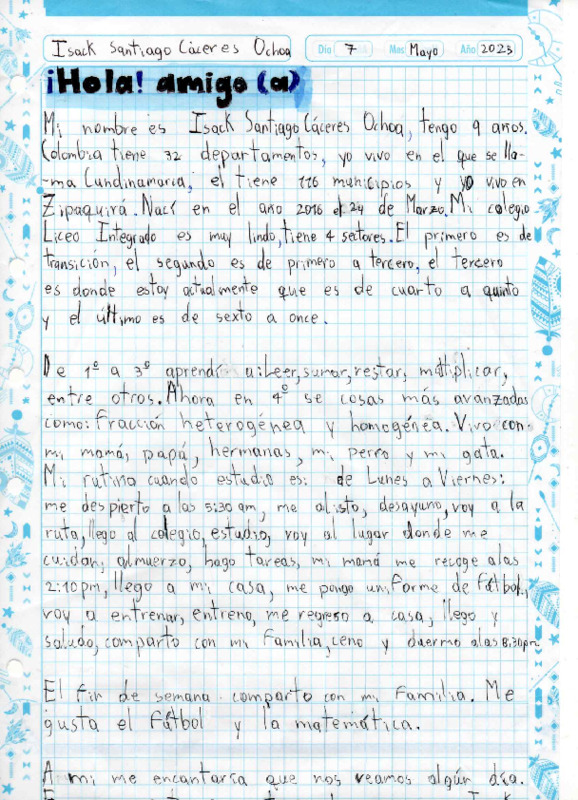 Isack Santiago Cáceres Ochoa Día 7 Mes Mayo Año 2023
¡Hola! amigo (a)
Mi nombre es Isack Santiago Cáceres Ochoa, tengo 9 años.
Colombia tiene 32 departamentos, yo vivo en el que se lla-
-ma Cundinamarca, el tiene 116 municipios y yo vivo en
Zipaquirá. Nací en el año 2016 el 24 de Marzo. Mi colegio
Liceo Integrado es muy lindo, tiene 4 sectores. El primero es de
transición, el segundo es de primero a tercero, el tercero
es donde estoy actualmente que es de cuarto a quinto
y el último es de sexto a once.
De 1º a 3º aprendí a: Leer, sumar, restar, multiplicar,
entre otros. Ahora en 4º se cosas más avanzadas
como: fracción heterogénea y homogénea. Vivo con
mi mamá, papá, hermanas, mi perro y mi gata.
Mi rutina cuando estudio es: de Lunes a Viernes:
me despierto a las 5:30 am, me alisto, desayuno, voy a la
ruta, llego al colegio, estudio, voy al lugar donde me
cuidan, almuerzo, hago tareas, mi mamá me recoge a las
2:10 pm, llego a mi casa, me pongo uniforme de fútbol,
voy a entrenar, entreno, me regreso a casa, llego y
saludo, comparto con mi familia, ceno y duermo a las 8:30 pm
El fin de semana comparto con mi familia. Me
gusta el fútbol y la matemática.
A mi me encantaría que nos veamos algún día.